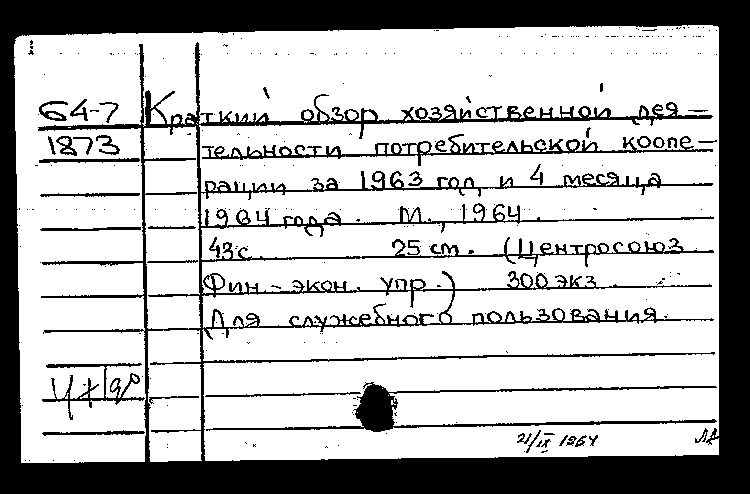 1
64-7 Краткий обзор хозяйственной дея-
1873 тельности потребительской коопе-
рации за 1963 год и 4 месяца
1964 года. М., 1964.
43с. 25 ст. (Центросоюз.
Фин.-экон. упр.) 300 экз.
Для служебного пользования.
21/IX 1964 ЛА